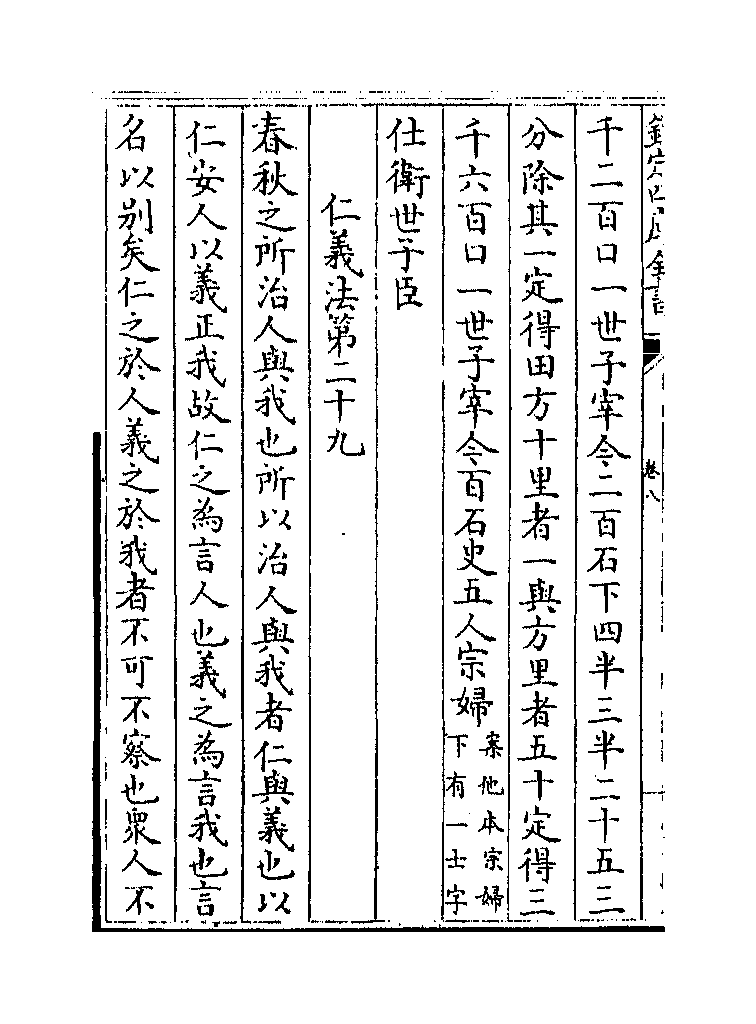 欽定四庫全書
卷八
千二百口一世子宰今二百石下四半三半二十五三
分除其一定得田方十里者一與方里者五十定得三
千六百口一世子宰今百石史五人宗婦案他本宗婦下有一士字
仕衛世子臣
仁義法第二十九
春秋之所治人與我也所以治人與我者仁與義也以
仁安人以義正我故仁之為言人也義之為言我也言
名以别矣仁之於人義之於我者不可不察也衆人不